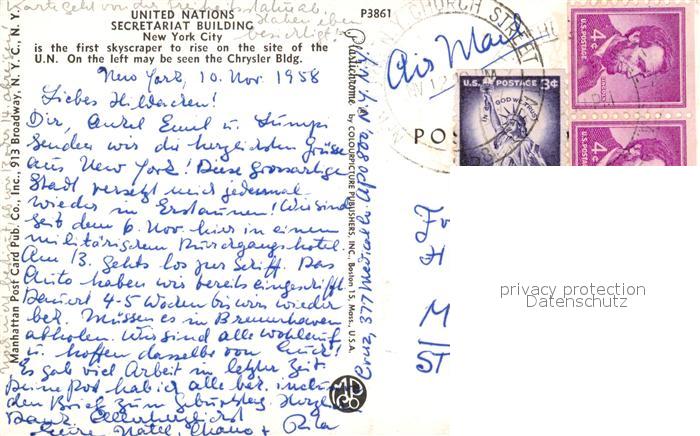 UNITED NATIONS
SECRETARIAT BUILDING
New York City
is the first skyscraper to rise on the site of the
U.N. On the left may be seen the Chrysler Bldg.
P3861
New York, 10. Nov. 1958
Liebes Hildachen!
Dir, Onkel Emil u. Stumpi
senden wir die herzlichsten Grüsse
aus New York! Diese grossartige
Stadt versetzt mich jedesmal
wieder in Erstaunen! Wir sind
seit dem 6. Nov. hier in einem
militärischen Durchgangshotel.
Am 13. gehts los per Schiff. Das
Auto haben wir bereits eingeschifft.
Dauert 4-5 Wochen bis wir wieder
bek. Müssen es in Bremerhaven
abholen. Wir sind alle wohlauf
u. hoffen dasselbe von Euch!
Es gab viel Arbeit in letzter Zeit
Deine Post hab ich alle bek. inclus.
den Brief zum Geburtstag. Herzl.
Dank. Allerherzlichst
Eure + Rita
Manhattan Post Card Pub. Co., Inc., 913 Broadway, N. Y. C., N. Y.
Plastichrome by COLOURPICTURE PUBLISHERS, INC., Boston 15, Mass., U.S.A.
Air Mail
CHURCH STREET
N.Y.
U.S. POSTAGE 3¢
IN GOD WE TRUST
U.S. POSTAGE
4¢
U.S. POSTAGE
4¢
POS
F
H
M
ST
privacy protection
Datenschutz